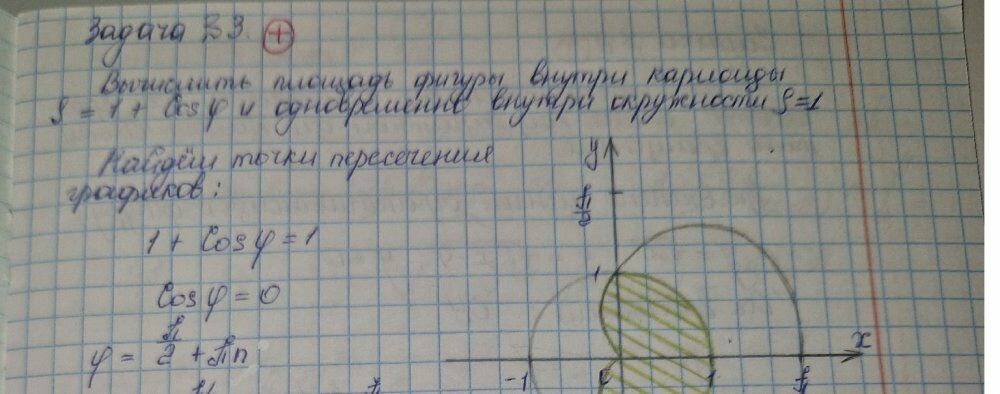 Задача В3. +
Вычислить площадь фигуры внутри кардиоиды
ρ = 1 + Cos φ и одновременно внутри окружности ρ=1
Найдём точки пересечения
графиков:
1 + Cos φ = 1
Cos φ = 0
φ = π/2 + πn
y
π/2
1
x
-1
1